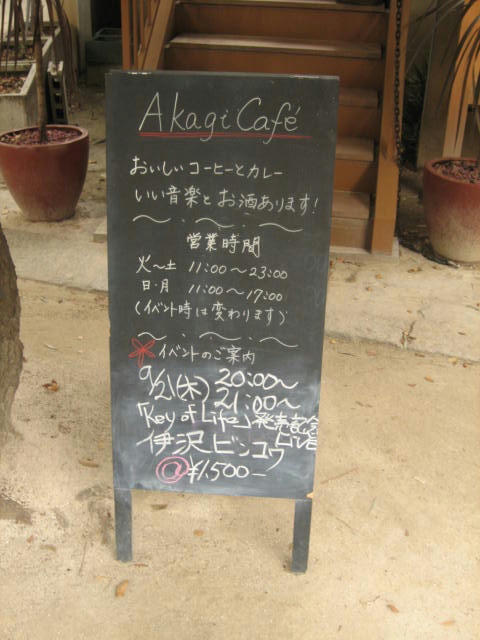 Akagi Café
おいしいコーヒーとカレー
いい音楽とお酒あります!
営業時間
火〜土 11:00〜23:00
日・月 11:00〜17:00
(イベント時は変わります)
イベントのご案内
9/21(木) 20:00〜
21:00〜
「Key of Life」発売記念
伊沢ビンコウ LIVE
@¥1,500-